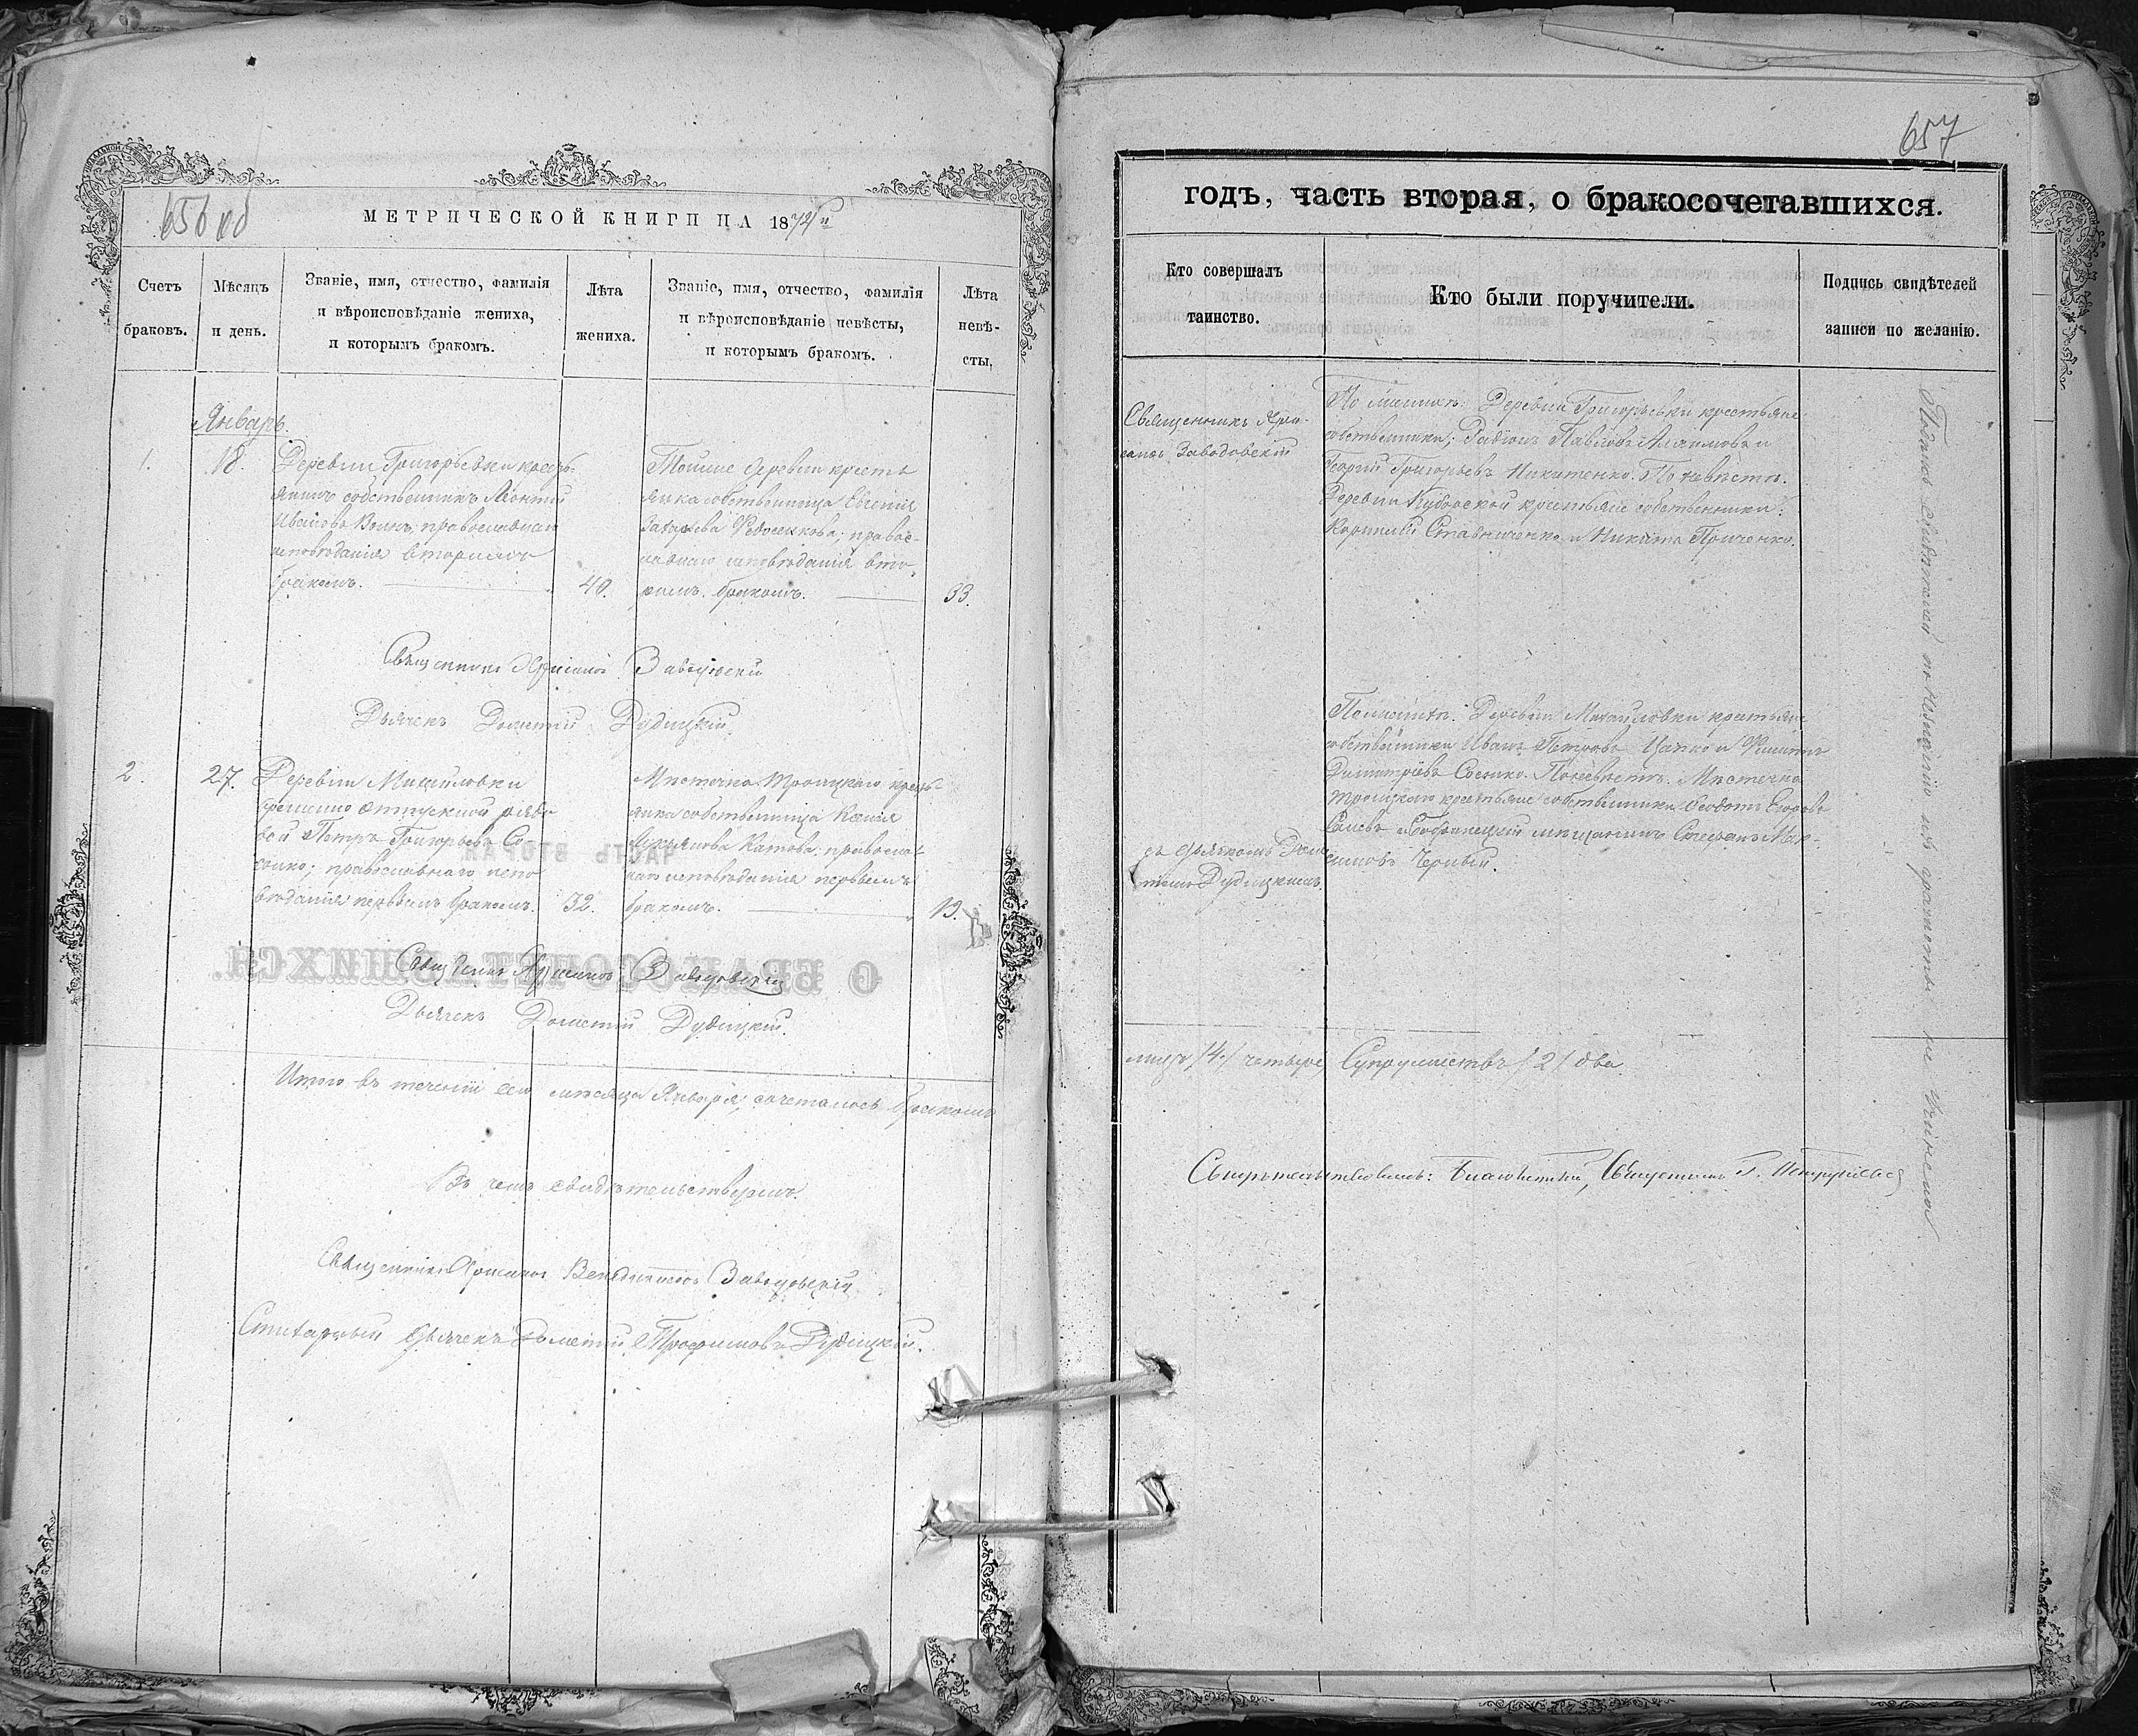 656 об
МЕТРИЧЕСКОЙ КНИГИ НА 1874й
Счетъ браковъ.
Мѣсяцъ и день.
Званіе, имя, отчество, фамилія
и вѣроисповѣданіе жениха,
и которымъ бракомъ.
Лѣта жениха.
Званіе, имя, отчество, фамилія
и вѣроисповѣданіе невѣсты,
и которымъ бракомъ.
Лѣта невѣ-
сты.
Январь.
1.
18.
Деревни Григорьевки кресть-
янинъ собственникъ Леонтій
Ивановъ Волкъ, православнаго
исповѣданія вторымъ
бракомъ.
40.
Тойже деревни кресть
янка собственница Евгенія
Захарьева Федосенкова; правос-
лавнаго исповѣданія вто-
рымъ бракомъ.
33.
Священникъ Заводовскій
Дьячекъ Дометій Дудицкій.
2.
27.
Деревни Михайловки
временно отпускной рядо
вой Петръ Григорьевъ Со
сонко; православнаго испо
вѣданія первымъ бракомъ.
32.
Мѣстечка Троицкаго кресть-
янка собственница Ксенія
Лукьянова Катова; православ-
наго исповѣданія первымъ
бракомъ.
19.
Священникъ Заводовскій
Дьячекъ Дометій Дудицкій.
Итого въ теченіи сего мѣсяца Января, сочеталось бракомъ
Въ чемъ свидѣтельствуемъ.
Священникъ Заводовскій
Дьячекъ Дометій Трофимовъ Дудицкій.
657
годъ, часть вторая, о бракосочетавшихся.
Кто совершалъ
таинство.
Кто были поручители.
Подпись свидѣтелей
записи по желанію.
Священникъ
Заводовскій
По женихѣ: Деревни Григорьевки крестьяне
собственники; Павловъ и
Георгій Григорьевъ Никитенко. По невѣстѣ:
Деревни крестьяне собственники:
Корнилій Ставниченко и Никита Приченко.
съ дьячкомъ Доме
тіемъ Дудицкимъ.
По женихѣ: Деревни Михайловки крестьяне
собственники Иванъ Петровъ Цапко и Филиппъ
Димитріевъ Сосонко. По невѣстѣ: Мѣстечка
Троицкаго крестьяне собственники Ѳеодотъ Егоровъ
и мѣщанинъ Степанъ Мак-
симовъ Черный.
Подпись свидѣтелей по неграмотны не учинено
лицъ /4/ четыре, Супружествъ /2/ два.
Свидѣтельствовалъ: Благочинный, Священникъ